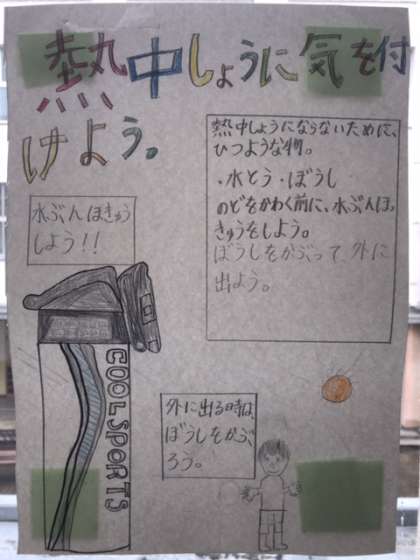 熱中しょうに気を付
けよう。
熱中しょうにならないために、
ひつような物。
・水とう・ぼうし
のどをかわく前に、水ぶんほ
きゅうをしよう。
ぼうしをかぶって外に
出よう。
水ぶんほきゅう
しよう!!
COOLSPORTS
外に出る時は、
ぼうしをかぶ
ろう。